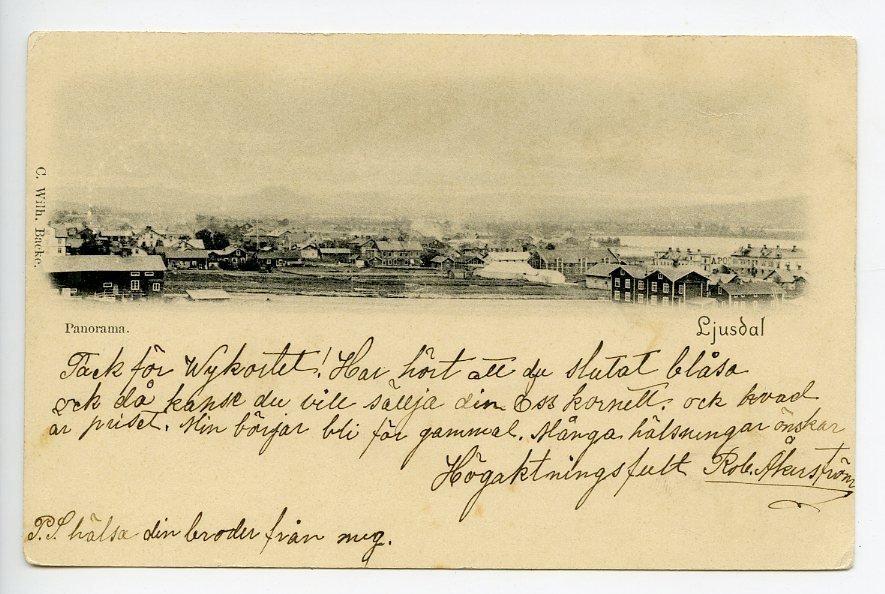 C. Wilh. Backe.
Panorama.
Ljusdal
Tack för Wykortet! Har hört att du slutat blåsa
ock då kansk du vill sällja din Ess kornett. ock hvad
är priset. Min börjar bli för gammal. Många hälsningar önskar
Högaktningsfullt Rob. Åkerström
P.S hälsa din broder från mig.